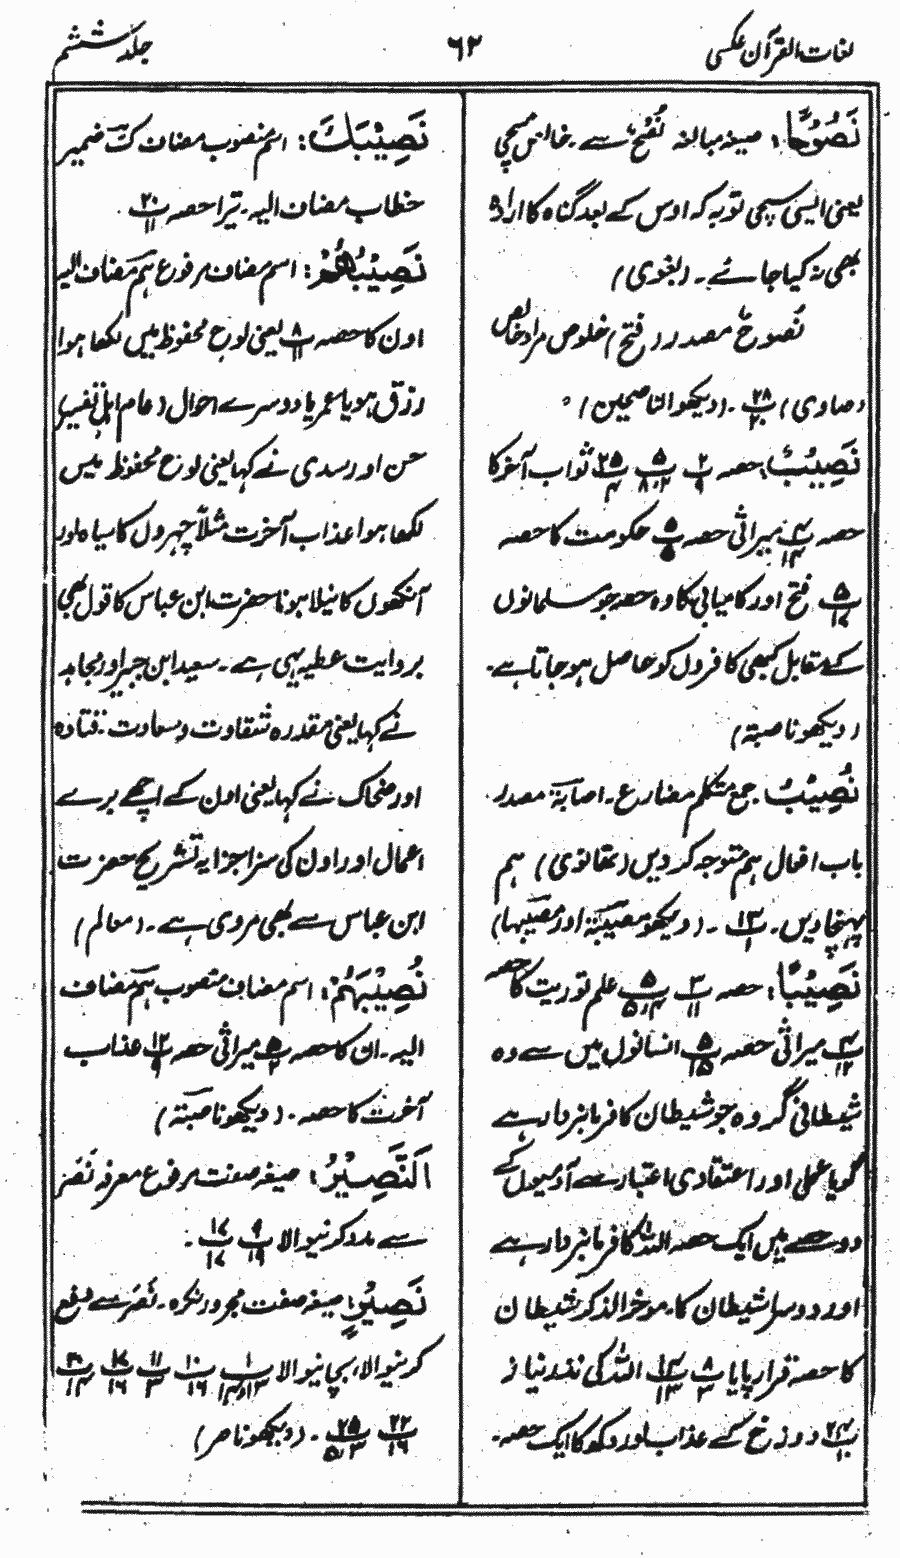 لغات القرآن عکسی
۶۲
جلد ششم
نَصُوحًا: صیغہ مبالغہ نُصْحٌ سے۔ خالص سچی
یعنی ایسی سچی توبہ کہ اوس کے بعد گناہ کا ارادہ
بھی نہ کیا جائے۔ (بغوی)
نُصوحٌ مصدر (ر فتح) خلوص مراد خالص
(صاوی) ۲۸/۲۰۔ (دیکھو الناصحین)
نَصِیْبٌ: حصہ ۲/۹ ۵/۸،۲ ۲۵/۴ ثواب آخر کا
حصہ ۴/۱۴ میراثی حصہ ۵/۵ حکومت کا حصہ
۵/۱۷ فتح اور کامیابی کا وہ حصہ جو مسلمانوں
کے مقابل کبھی کافروں کو حاصل ہو جاتا ہے۔
(دیکھو ناصبۃ)
نُصِیْبُ۔ جمع متکلم مضارع۔ اصابۃ مصدر
باب افعال ہم متوجہ کر دیں (تھانوی) ہم
پہنچادیں۔ ۱۳/۱ ۔ (دیکھو مصیبۃ اور مصیبہا)
نَصِیْبًا: حصہ ۳/۱۱ ۵/۵،۴ علم توریت کا حصہ
۴/۱۲ میراثی حصہ ۵/۱۵ انسانوں میں سے وہ
شیطانی گروہ جو شیطان کا فرمانبردار ہے
گویا عملی اور اعتقادی اعتبار سے آدمیوں کے
دو حصے ہیں ایک حصہ اللہ کا فرمانبردار ہے
اور دوسرا شیطان کا۔ موخر الذکر شیطان
کا حصہ قرار پایا ۸/۳ ۱۴/۱۳ اللہ کی نذر نیاز
۲۴/۱۰ دوزخ کے عذاب اور دکھ کا ایک حصہ۔
نَصِیْبَكَ: اسم منصوب مضاف كَ ضمیر
خطاب مضاف الیہ۔ تیرا حصہ ۲۰/۱۱۔
نَصِیْبُهُمْ: اسم مضاف مرفوع ہم مضاف الیہ
اون کا حصہ ۸/۱۱ یعنی لوح محفوظ میں لکھا ہوا
رزق ہو یا عمر یا دوسرے احوال (عام اہل تفسیر)
حسن اور سدی نے کہا یعنی لوح محفوظ میں
لکھا ہوا عذاب آخرت مثلاً چہروں کا سیاہ اور
آنکھوں کا نیلا ہونا حضرت ابن عباس کا قول بھی
بروایت عطیہ یہی ہے۔ سعید ابن جبیر اور مجاہد
نے کہا یعنی مقدرہ شقاوت و سعادت۔ قتادہ
اور ضحاک نے کہا یعنی اون کے اچھے برے
اعمال اور اون کی سزا جزا یہ تشریح حضرت
ابن عباس سے بھی مروی ہے۔ (معالم)
نَصِیْبَهُمْ: اسم مضاف منصوب ہم مضاف
الیہ۔ ان کا حصہ ۵/۲ میراثی حصہ ۱۲/۹ عذاب
آخرت کا حصہ۔ (دیکھو ناصبۃ)
اَلنَّصِیْرُ: صیغہ صفت مرفوع معرفہ نَصْر
سے مدد کرنیوالا ۹/۱۹ ۱۷/۱۷۔
نَصِیْرٍ: صیغہ صفت مجرور نکرہ۔ نَصْر سے دفع
کرنیوالا، بچانیوالا ۱/۱۳،۱۴ ۱۰/۱۶ ۱۱/۳ ۱۷/۱۶ ۲۰/۱۴
۲۲/۱۶ ۲۵/۵،۳۔ (دیکھو ناصر)